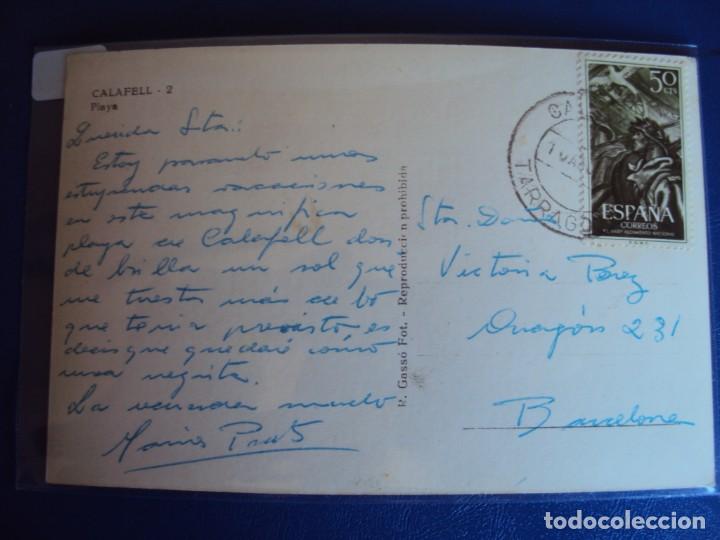 CALAFELL - 2
Playa
Querida Sta.:
Estoy pasando unas
estupendas vacaciones
en este magnifica
playa de Calafell don
de brilla un sol que
me tuesta más de lo
que tenia previsto, es
decir que quedaré como
una negrita.
La recuerda mucho
Prats
R. Gassó Fot. - Reproduccion prohibida
TARRAGO
50
CTS
ESPAÑA
CORREOS
Sta.
Victoria Perez
Aragón 231
Barcelona
todocoleccion
todocoleccion.net